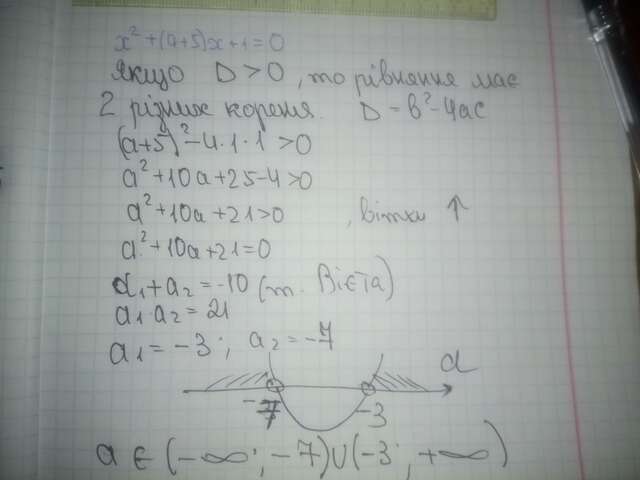 x² + (a+5)x + 1 = 0
Якщо D > 0, то рівняння має
2 різних кореня. D = b² - 4ac
(a+5)² - 4·1·1 > 0
a² + 10a + 25 - 4 > 0
a² + 10a + 21 > 0 , вітки ↑
a² + 10a + 21 = 0
a₁ + a₂ = -10 (т. Вієта)
a₁ · a₂ = 21
a₁ = -3; a₂ = -7
a
-7 -3
a ∈ (-∞; -7) ∪ (-3; +∞)